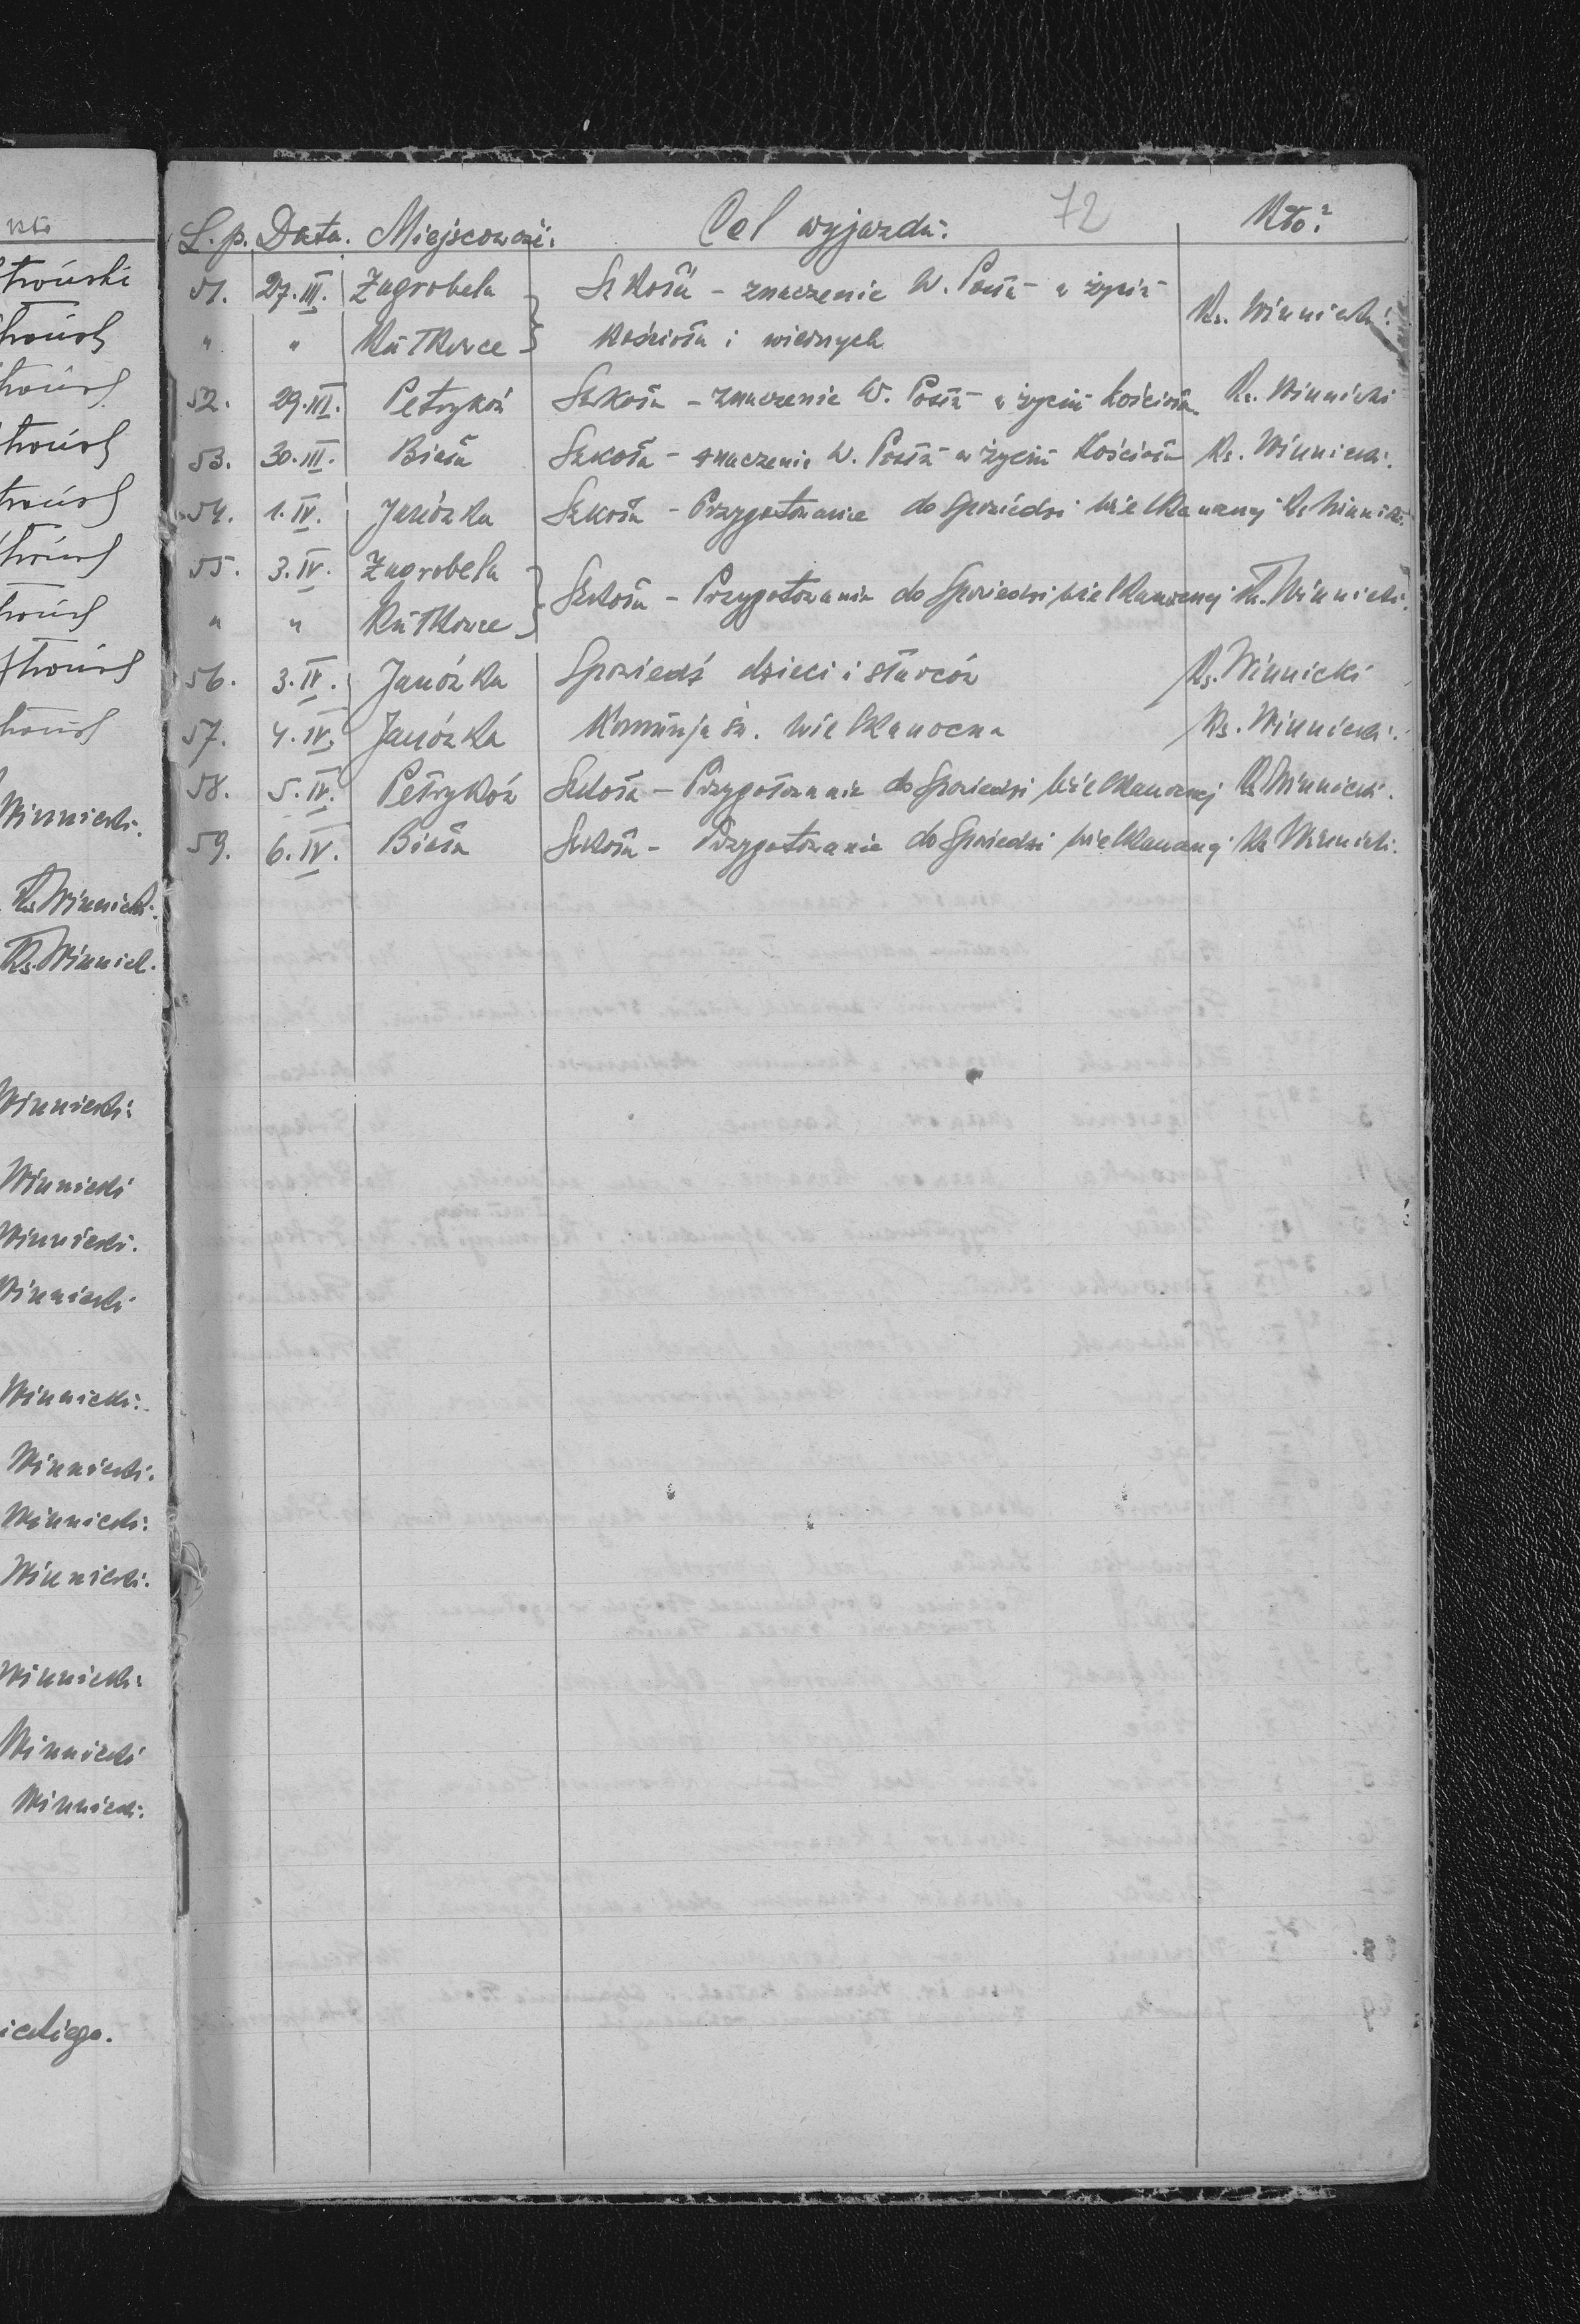 72
L.p. Data. Miejscowość. Cel wyjazdu. Kto?
51. 27.III. Zagrobela Szkoła – znaczenie W. Postu w życiu Ks. Winnicki.
" " Kutkowce Kościoła i wiernych
52. 29.III. Petryków Szkoła – znaczenie W. Postu w życiu Kościoła Ks. Winnicki
53. 30.III. Biała Szkoła – znaczenie W. Postu w życiu Kościoła Ks. Winnicki.
54. 1.IV. Janówka Szkoła – Przygotowanie do Spowiedzi wielkanocnej Ks Winnicki
55. 3.IV. Zagrobela Szkoła – Przygotowanie do Spowiedzi wielkanocnej Ks. Winnicki.
" " Kutkowce
56. 3.IV. Janówka Spowiedź dzieci i starców Ks. Winnicki
57. 4.IV. Janówka Komunja św. wielkanocna Ks. Winnicki.
58. 5.IV. Petryków Szkoła – Przygotowanie do Spowiedzi wielkanocnej Ks Winnicki.
59. 6.IV. Biała Szkoła – Przygotowanie do Spowiedzi wielkanocnej Ks Winnicki.
Winnicki.
Ks. Winnicki.
Ks. Winnick.
Winnicki.
Winnicki
Winnicki.
Winnicki
Winnicki.
Winnicki.
Winnicki.
Winnicki.
Winnicki.
Winnicki
Winnicki.
ickiego.